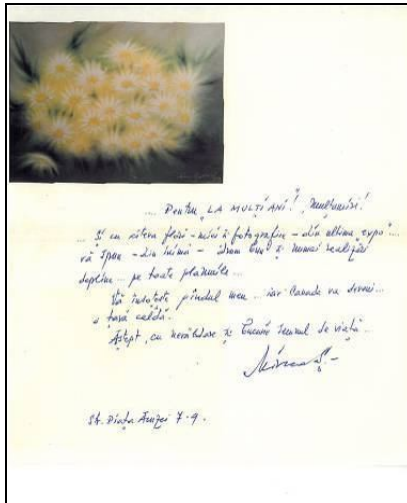 ... Pentru „LA MULȚI ANI!” mulțumiri!
... Și cu câteva flori - mică fotografie - din ultima expo...
vă spun - din inimă - drum bun și numai realizări
depline... pe toate planurile...
Vă însoțește gândul meu... iar Canada va deveni...
o țară caldă.
Aștept, cu nerăbdare și bucurie semnul de viață...
Str. Piața Amzei 7-9.